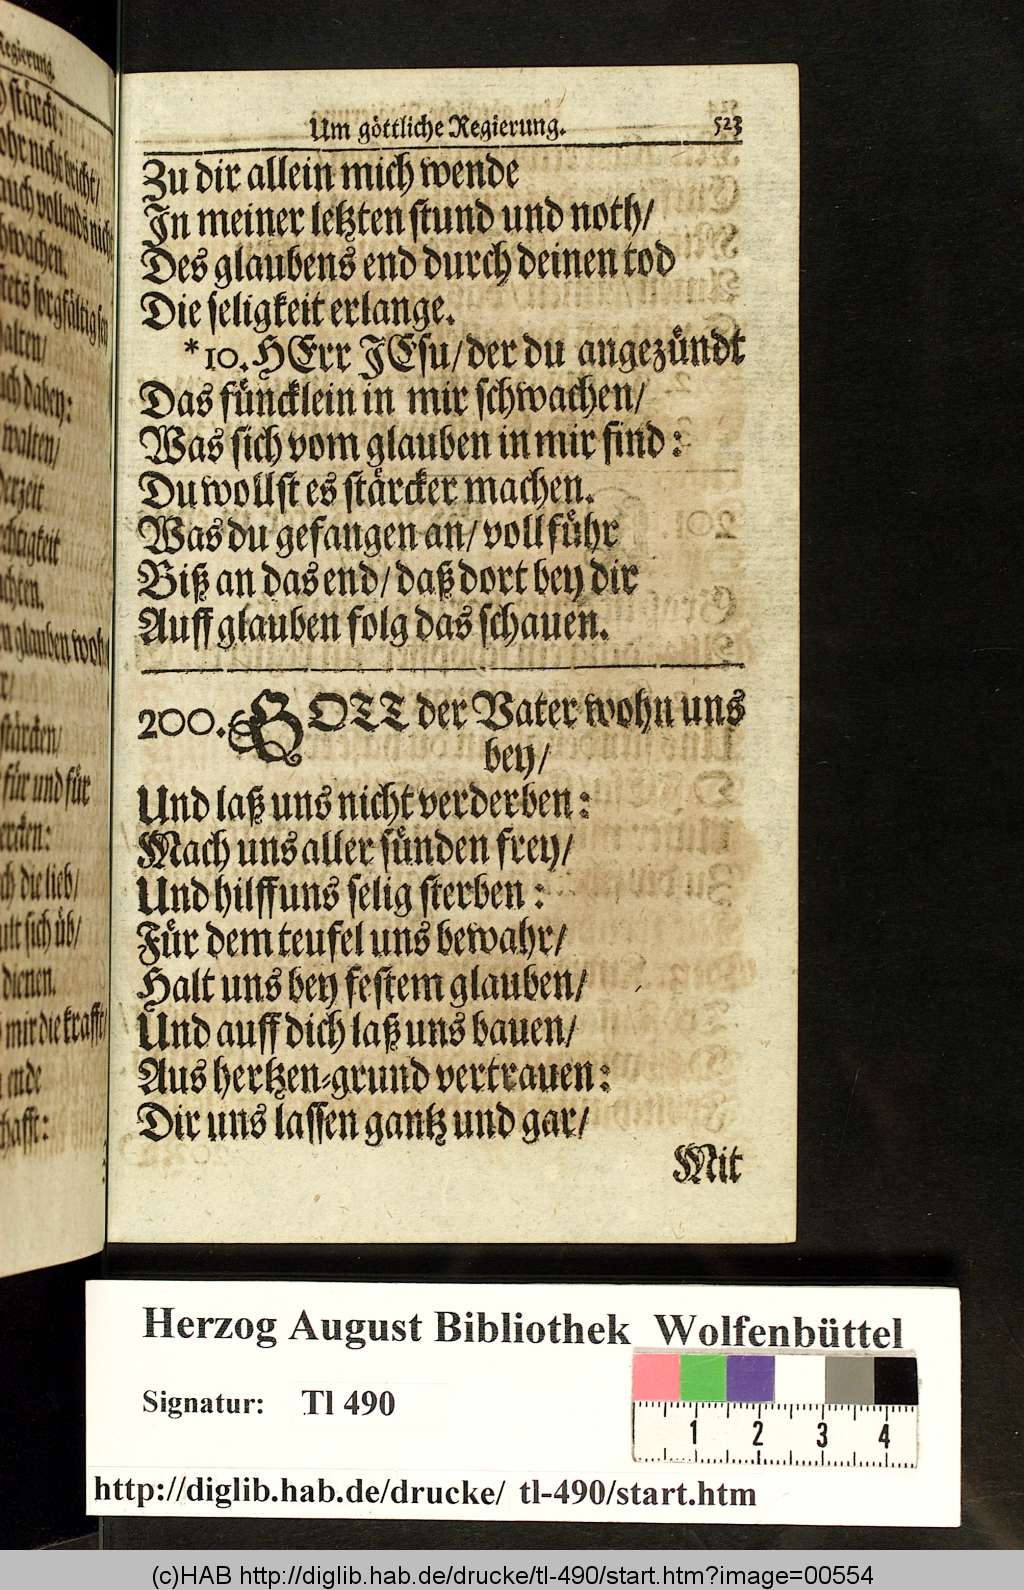 Regierung.
stärck:
ohr nicht bricht/
auch vollends nicht
stets sorgfältig
halten/
dabey:
walten/
glauben
stärcken/
für und für
die lieb/
sich üb/
dienen.
mir die krafft/
ende
Um göttliche Regierung. 523
Zu dir allein mich wende
In meiner letzten stund und noth/
Des glaubens end durch deinen tod
Die seligkeit erlange.
*10. HErr JEsu/ der du angezündt
Das füncklein in mir schwachen/
Was sich vom glauben in mir find:
Du wollst es stärcker machen.
Was du gefangen an/ vollführ
Biß an das end/ daß dort bey dir
Auff glauben folg das schauen.
200. GOTT der Vater wohn uns
bey/
Und laß uns nicht verderben:
Mach uns aller sünden frey/
Und hilff uns selig sterben:
Für dem teufel uns bewahr/
Halt uns bey festem glauben/
Und auff dich laß uns bauen/
Aus hertzen-grund vertrauen:
Dir uns lassen gantz und gar/
Mit
Herzog August Bibliothek Wolfenbüttel
Signatur: Tl 490
1 2 3 4
http://diglib.hab.de/drucke/ tl-490/start.htm
(c)HAB http://diglib.hab.de/drucke/tl-490/start.htm?image=00554